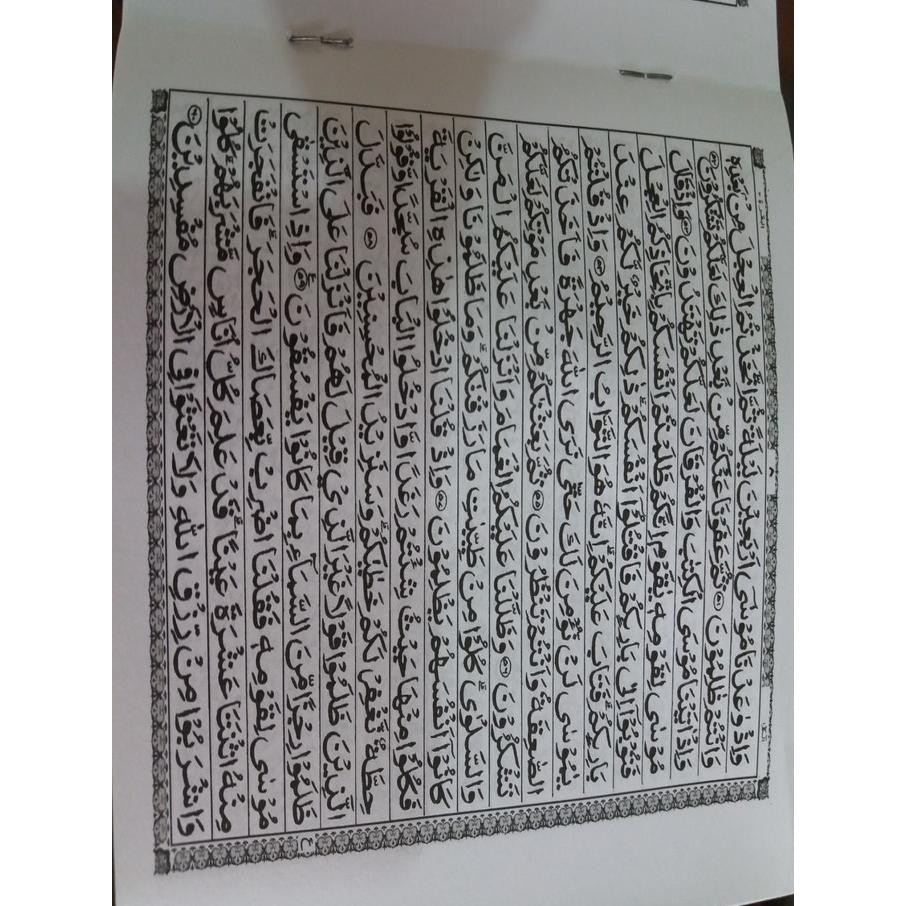 ٨
وَاِذْ وٰعَدْنَا مُوْسٰٓى اَرْبَعِيْنَ لَيْلَةً ثُمَّ اتَّخَذْتُمُ الْعِجْلَ مِنْۢ بَعْدِهٖ
وَاَنْتُمْ ظٰلِمُوْنَ ۵۱ ثُمَّ عَفَوْنَا عَنْكُمْ مِّنْۢ بَعْدِ ذٰلِكَ لَعَلَّكُمْ تَشْكُرُوْنَ ۵۲
وَاِذْ اٰتَيْنَا مُوْسَى الْكِتٰبَ وَالْفُرْقَانَ لَعَلَّكُمْ تَهْتَدُوْنَ ۵۳ وَاِذْ قَالَ
مُوْسٰى لِقَوْمِهٖ يٰقَوْمِ اِنَّكُمْ ظَلَمْتُمْ اَنْفُسَكُمْ بِاتِّخَاذِكُمُ الْعِجْلَ
فَتُوْبُوْٓا اِلٰى بَارِئِكُمْ فَاقْتُلُوْٓا اَنْفُسَكُمْ ؕ ذٰلِكُمْ خَيْرٌ لَّكُمْ عِنْدَ
بَارِئِكُمْ ؕ فَتَابَ عَلَيْكُمْ ؕ اِنَّهٗ هُوَ التَّوَّابُ الرَّحِيْمُ ۵۴ وَاِذْ قُلْتُمْ
يٰمُوْسٰى لَنْ نُّؤْمِنَ لَكَ حَتّٰى نَرَى اللّٰهَ جَهْرَةً فَاَخَذَتْكُمُ
الصّٰعِقَةُ وَاَنْتُمْ تَنْظُرُوْنَ ۵۵ ثُمَّ بَعَثْنٰكُمْ مِّنْۢ بَعْدِ مَوْتِكُمْ لَعَلَّكُمْ
تَشْكُرُوْنَ ۵۶ وَظَلَّلْنَا عَلَيْكُمُ الْغَمَامَ وَاَنْزَلْنَا عَلَيْكُمُ الْمَنَّ
وَالسَّلْوٰى ؕ كُلُوْا مِنْ طَيِّبٰتِ مَا رَزَقْنٰكُمْ ؕ وَمَا ظَلَمُوْنَا وَلٰكِنْ
كَانُوْٓا اَنْفُسَهُمْ يَظْلِمُوْنَ ۵۷ وَاِذْ قُلْنَا ادْخُلُوْا هٰذِهِ الْقَرْيَةَ
فَكُلُوْا مِنْهَا حَيْثُ شِئْتُمْ رَغَدًا وَّادْخُلُوا الْبَابَ سُجَّدًا وَّقُوْلُوْا
حِطَّةٌ نَّغْفِرْ لَكُمْ خَطٰيٰكُمْ ؕ وَسَنَزِيْدُ الْمُحْسِنِيْنَ ۵۸ فَبَدَّلَ
الَّذِيْنَ ظَلَمُوْا قَوْلًا غَيْرَ الَّذِيْ قِيْلَ لَهُمْ فَاَنْزَلْنَا عَلَى الَّذِيْنَ
ظَلَمُوْا رِجْزًا مِّنَ السَّمَآءِ بِمَا كَانُوْا يَفْسُقُوْنَ ۵۹ وَاِذِ اسْتَسْقٰى
مُوْسٰى لِقَوْمِهٖ فَقُلْنَا اضْرِبْ بِّعَصَاكَ الْحَجَرَ ؕ فَانْفَجَرَتْ
مِنْهُ اثْنَتَا عَشْرَةَ عَيْنًا ؕ قَدْ عَلِمَ كُلُّ اُنَاسٍ مَّشْرَبَهُمْ ؕ كُلُوْا
وَاشْرَبُوْا مِنْ رِّزْقِ اللّٰهِ وَلَا تَعْثَوْا فِى الْاَرْضِ مُفْسِدِيْنَ ۶۰